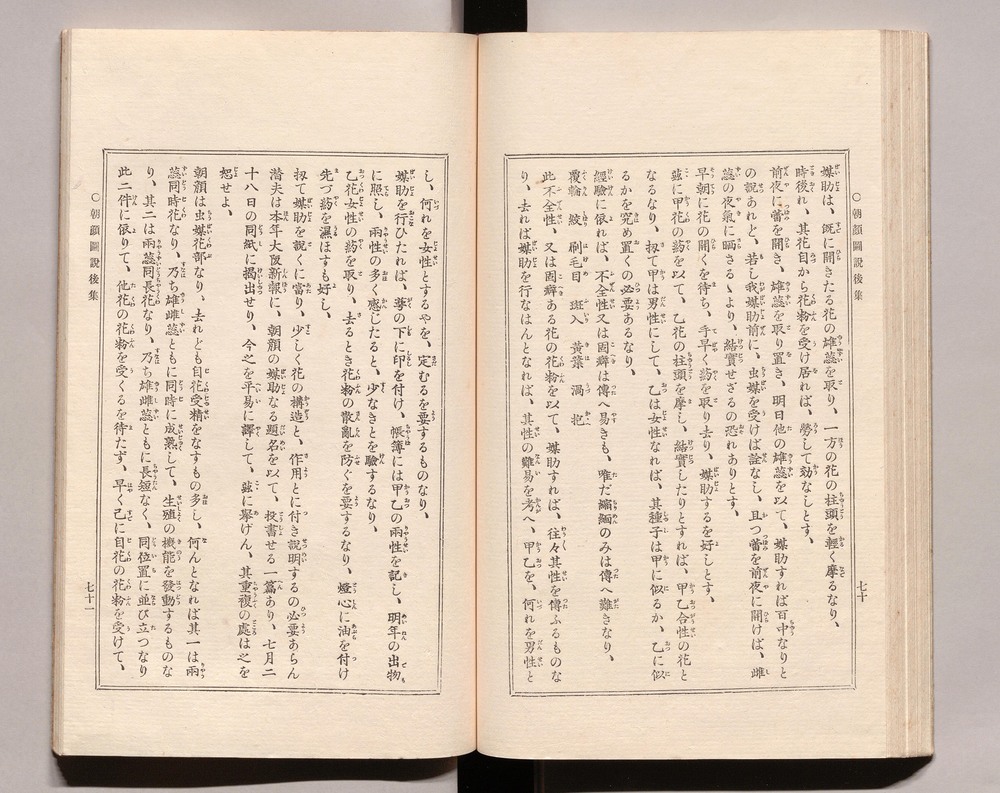 ○朝顔圖説後集
七十
媒助は、既に開きたる花の雄蕊を取り、一方の花の柱頭を輕く摩るなり、
時後れ、其花自から花粉を受け居れば、勞して効なしとす、
前夜に蕾を開き、雄蕊を取り置き、明日他の雄蕊を以て、媒助すれば百中なりと
の説あれど、若し我媒助前に、虫媒を受けば詮なし、且つ蕾を前夜に開けば、雌
蕊の夜氣に晒さるゝより、結實せざるの恐れありとす、
早朝に花の開くを待ち、手早く葯を取り去り、媒助するを好しとす、
玆に甲花の葯を以て、乙花の柱頭を摩し、結實したりとすれば、甲乙合性の花と
なるなり、扨て甲は男性にして、乙は女性なれば、其種子は甲に似るか、乙に似
るかを究め置くの必要あるなり、
經驗に依れば、不全性又は固癖は傳へ易きも、唯だ縮緬のみは傳へ難きなり、
覆輪 絞 刷毛目 斑入 黄葉 渦 抱
此不全性、又は固癖ある花の花粉を以て、媒助すれば、往々其性を傳ふるものな
り、去れば媒助を行なはんとなれば、其性の難易を考へ、甲乙を、何れを男性と
し、何れを女性とするやを、定むるを要するものなり、
媒助を行ひたれば、蕚の下に印を付け、帳簿には甲乙の兩性を記し、明年の出物
に照し、兩性の多く感じたると、少なきとを驗するなり、
乙花女性の葯を取り、去るとき花粉の散亂を防ぐを要するなり、燈心に油を付け
先づ葯を濕ほすも好し、
扨て媒助を説くに當り、少しく花の構造と、作用とに付き説明するの必要あらん
潜夫は本年大阪新報に、朝顔の媒助なる題名を以て、投書せる一篇あり、七月二
十八日の同紙に掲出せり、今之を平易に譯して、玆に擧げん、其重複の處は之を
恕せよ、
朝顔は虫媒花部なり、去れとも自花受精をなすもの多し、何んとなれば其一は兩
蕊同時花なり、乃ち雄雌蕊ともに同時に成熟して、生殖の機能を發動するものな
り、其二は兩蕊同長花なり、乃ち雄雌蕊ともに長短なく、同位置に並び立つなり
此二件に依りて、他花の花粉を受くるを待たず、早く已に自花の花粉を受けて、
○朝顔圖説後集
七十一